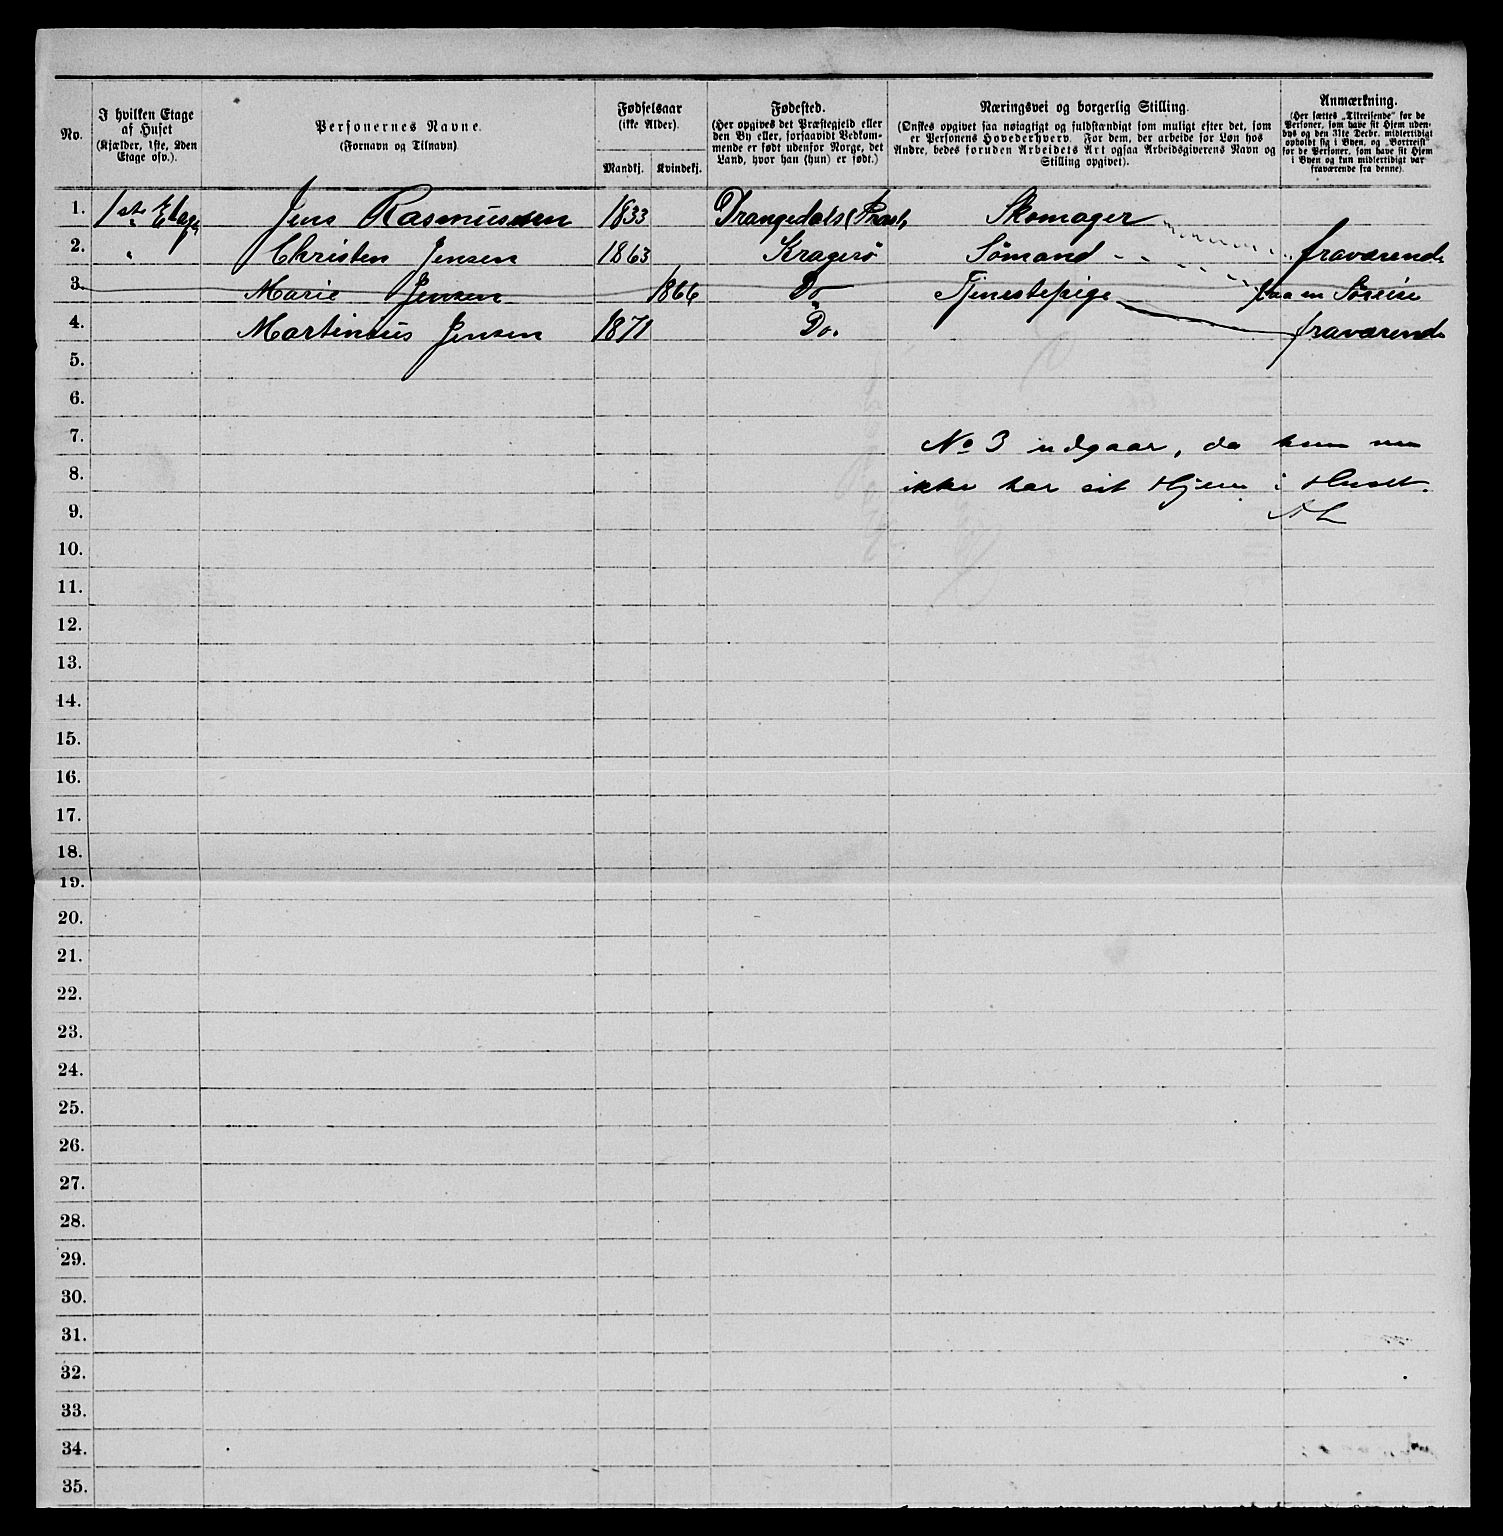 No.
I hvilken Etage
af Huset
(Kjælder, 1ste, 2den
Etage osv.).
Personernes Navne.
(Fornavn og Tilnavn).
Fødselsaar
(ikke Alder).
Mandkj. Kvindekj.
Fødested.
(Her opgives det Præstegjeld eller
den By eller, forsaavidt Vedkom-
mende er født udenfor Norge, det
Land, hvor han (hun) er født.)
Næringsvei og borgerlig Stilling.
(Ønskes opgivet saa nøiagtigt og fuldstændigt som muligt efter det, som
er Personens Hovederhverv. For dem, der arbeide for Løn hos
Andre, bedes foruden Arbeidets Art ogsaa Arbeidsgiverens Navn og
Stilling opgivet).
Anmærkning.
(Her sættes „Tilreisende“ for de
Personer, som have sit Hjem uden-
bys og den 31te Decbr. midlertidigt
opholdt sig i Byen, og „Bortreist“
for de Personer, som have sit Hjem
i Byen og kun midlertidigt var
fraværende fra denne).
1. 1ste Etage Jens Rasmussen 1833 Drangedals Præst. Skomager
2. " Christen Jensen 1863 Kragerø Sømand fraværende
3. Marie Jensen 1866 Do Tjenestepige paa en Søreise
4. Martinius Jensen 1871 Do. fraværende
5.
6.
7. No 3 udgaar, da hun nu
8. ikke har sit Hjem i Huset.
9.
10.
11.
12.
13.
14.
15.
16.
17.
18.
19.
20.
21.
22.
23.
24.
25.
26.
27.
28.
29.
30.
31.
32.
33.
34.
35.